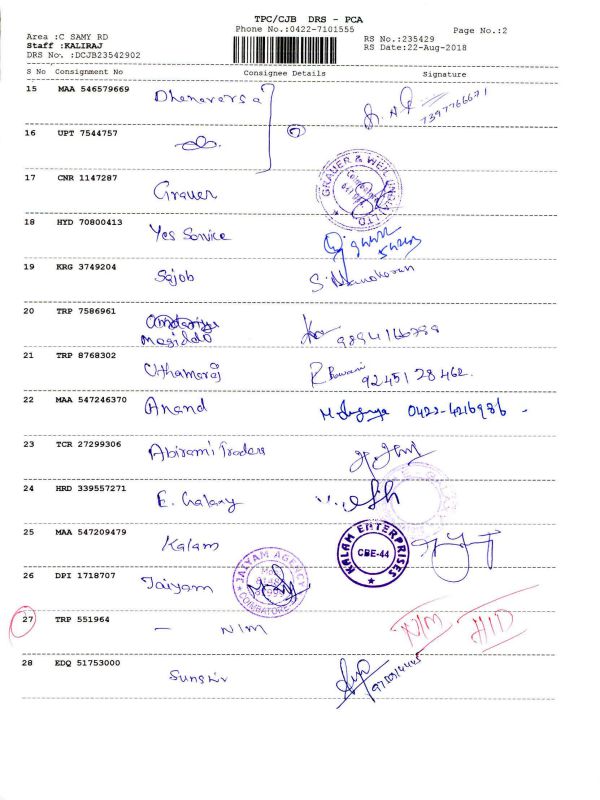 TPC/CJB DRS - PCA
Phone No.:0422-7101555
Page No.:2
Area :C SAMY RD
RS No.:235429
Staff :KALIRAJ
RS Date:22-Aug-2018
DRS No. :DCJB23542902
S No Consignment No Consignee Details Signature
15 MAA 546579669 Dhanavarsa 7397766671
16 UPT 7544757
17 CNR 1147287 Grauer
GRAUER & WEIL INDIA LTD
18 HYD 70800413 Yes Service
19 KRG 3749204 Sajob S. Manoharan
20 TRP 7586961
Magiddo 9894166799
21 TRP 8768302 Uthamaraj R 9245128462
22 MAA 547246370 Anand 0422-4216986
23 TCR 27299306 Abirami Traders
24 HRD 339557271 E. Galaxy
25 MAA 547209479 Kalam
KALAM ENTERPRISES
CBE-44
26 DPI 1718707 Jaiyam
JAIYAM AGENCY
COIMBATORE
27 TRP 551964 - NIM NIM HID
28 EDQ 51753000 Sunshiv